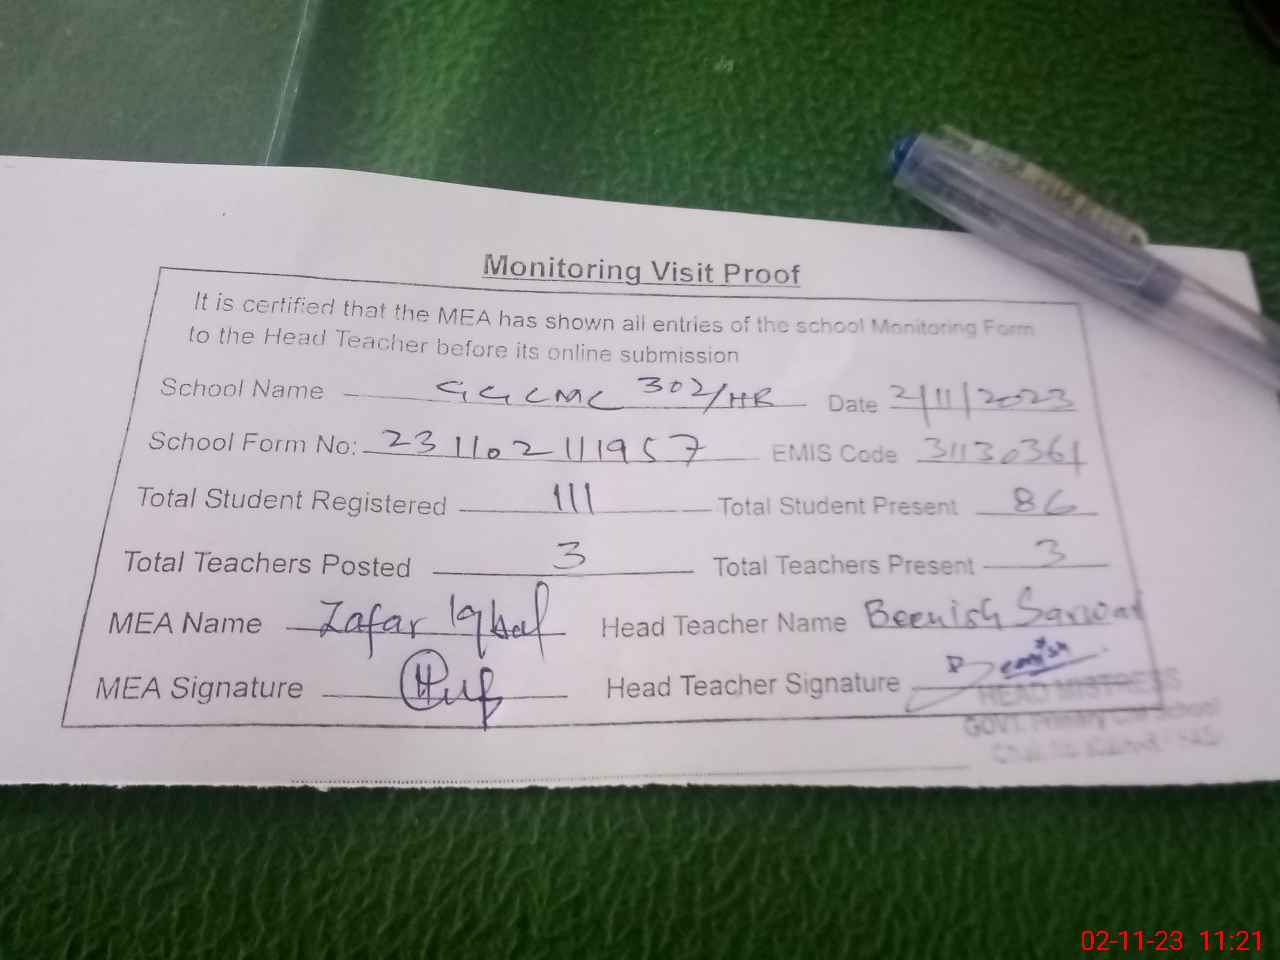 Monitoring Visit Proof
It is certified that the MEA has shown all entries of the school Monitoring Form
to the Head Teacher before its online submission
School Name GGCMC 302/HR Date 2/11/2023
School Form No: 231102111957 EMIS Code 31130361
Total Student Registered 111 Total Student Present 86
Total Teachers Posted 3 Total Teachers Present 3
MEA Name Zafar Iqbal Head Teacher Name Beenish Sarwat
MEA Signature Head Teacher Signature Beenish
HEAD MISTRESS
GOVT. Primary School
02-11-23 11:21